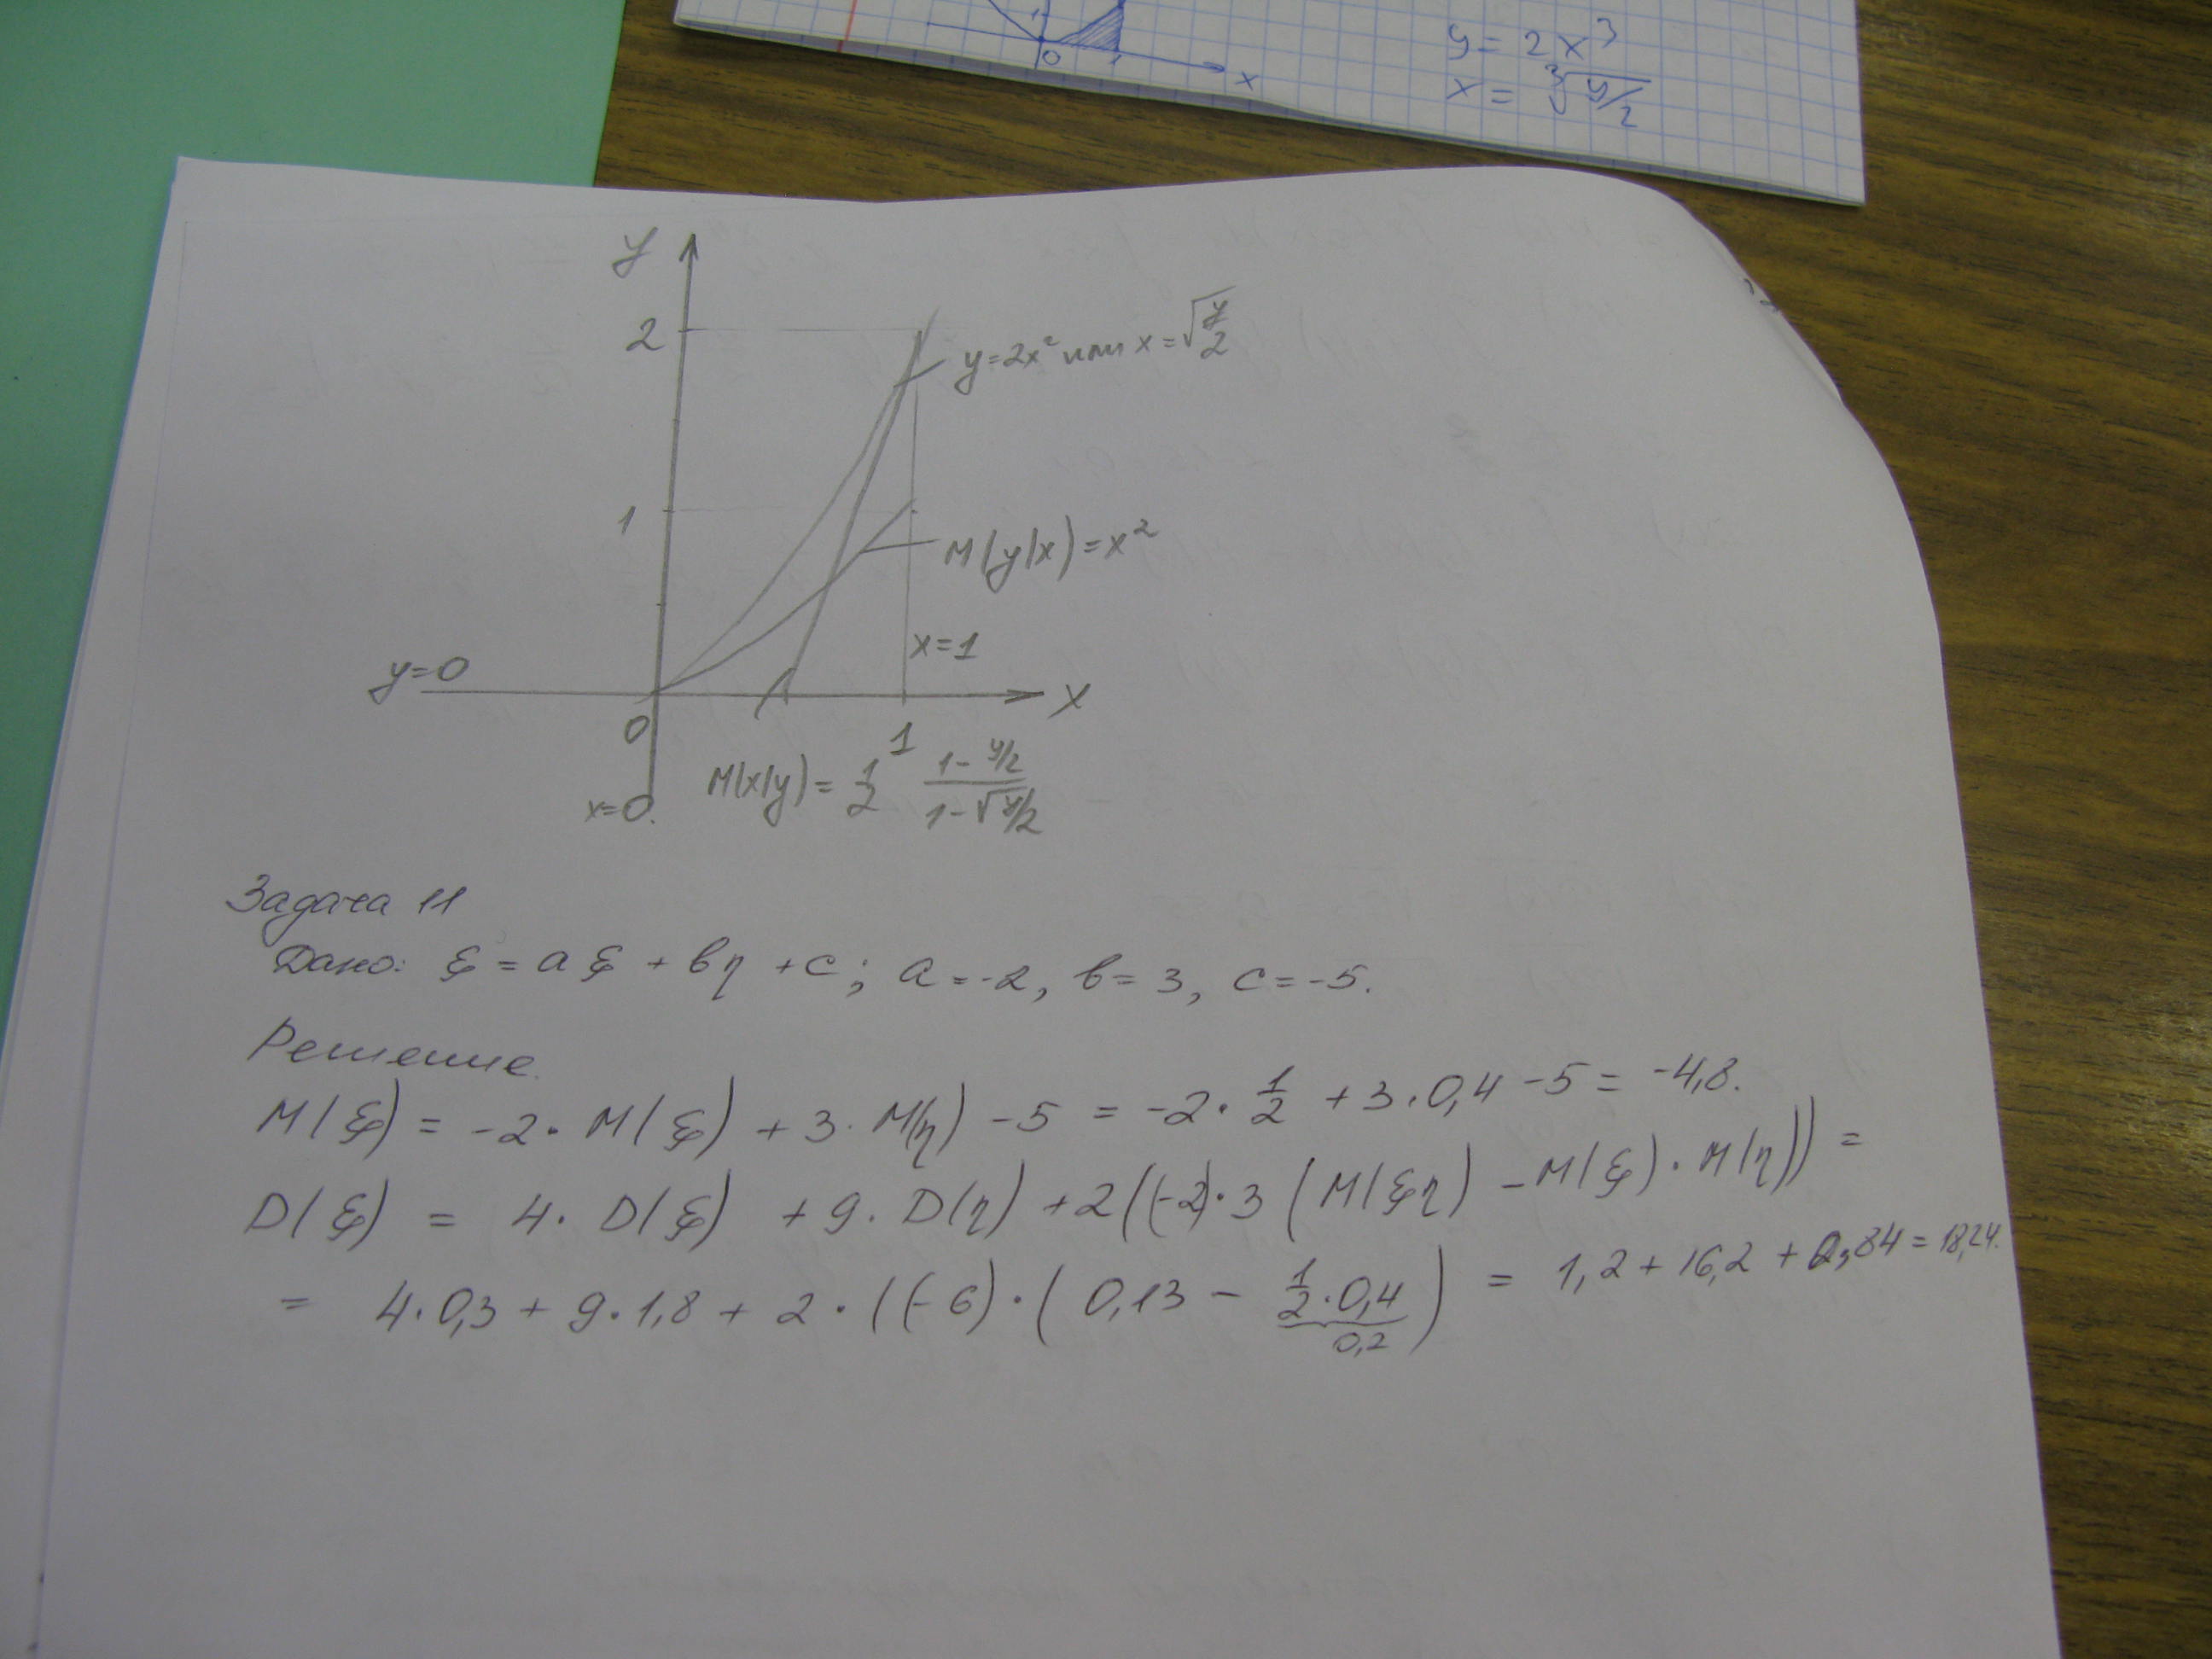 1
0 1 x
y = 2x³
x = ∛(y/2)
y
2
y=2x² или x=√(y/2)
1
M(y/x)=x²
x=1
y=0
x
0
1
M(x/y) = 1/2 (1-y/2)/(1-√(y/2))
x=0.
Задача 11
Дано: ξ = aξ + вη + c; a=-2, в=3, c=-5.
Решение.
M(ξ) = -2·M(ξ) + 3·M(η) -5 = -2·1/2 +3·0,4 -5 = -4,8.
D(ξ) = 4·D(ξ) +9·D(η) +2((-2)·3(M(ξη) -M(ξ)·M(η)) =
= 4·0,3 + 9·1,8 + 2·((-6)·(0,13 - 1/2·0,4) = 1,2+16,2+0,84=18,24.
0,2